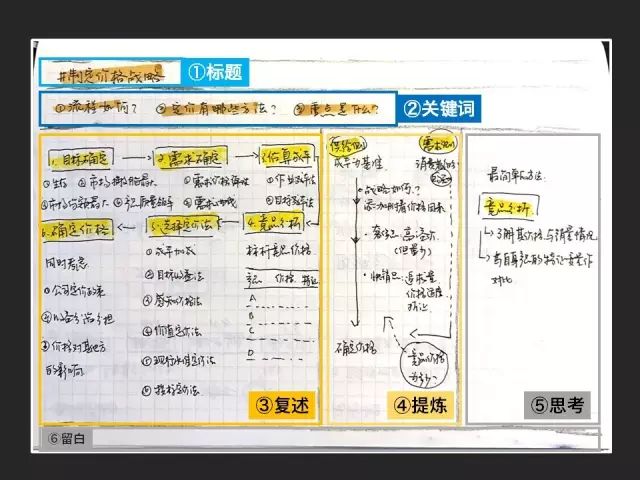 #制定价格战略
①标题
①流程如何？ ②定价有哪些方法？ ③重点是什么？
②关键词
1.目标确定 2.需求确定 3.估算成本
①生存 ②市场撇脂最大 ①需求价格弹性 ①作业成本法
③市场份额最大 ④产品质量领先 ②需求曲线 ②目标成本法
6.确定价格 5.选择定价法 4.竞品分析
同时考虑
①公司定价政策
②收益分端分担
③价格对其他方
的影响
①成本加成
②目标收益法
③感知价格法
④价值定价法
⑤现行水平定价法
⑥拍卖定价法
标杆竞品价格
产品 价格 特征
A
B
C
D
③复述
供给侧 需求侧
成本为基准 消费数的
战略如何？
添加附精价格因素
奢侈品：高溢价
（但量少）
快销品：追求量
价格适度
折让
确定价格
竞品价格
为多少？
④提炼
最简单的方法
竞品分析
了解其价格与销量情况
与自身产品的特征/质量作
对比
⑤思考
⑥留白